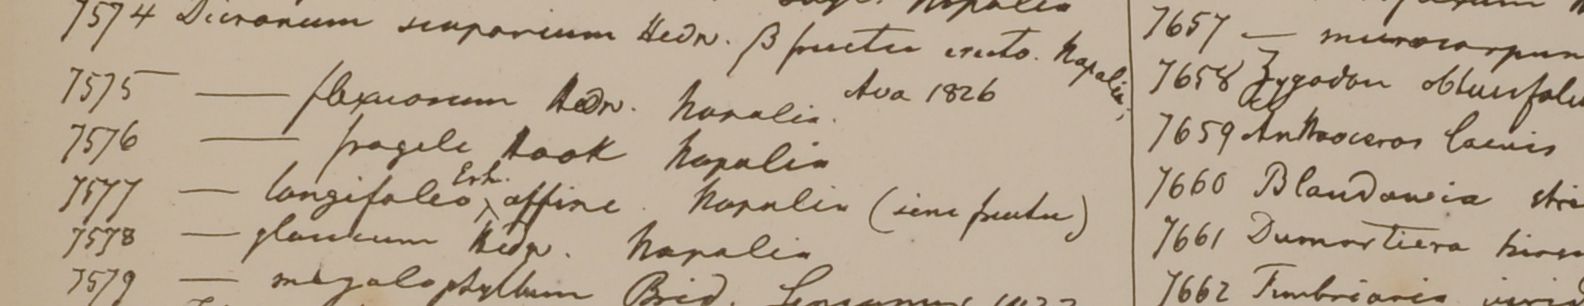 Napalia
7574 Dicranum scoparium Hedw. β fructu erecto. Napalia.
7575 —— flexuosum Hedw. Napalia. Ava 1826
7576 —— fragile Hook Napalia
7577 — longifolio Erh. affine. Napalia (sine fructu)
7578 — glaucum Hedw. Napalia
7579 — megalophyllum Brid.
7657 — microcarpum
7658 Zygodon obtusifoliu
7659 Anthoceros laevis
7660 Blandowia stri
7661 Dumortiera hirsu
7662 Fimbriaria